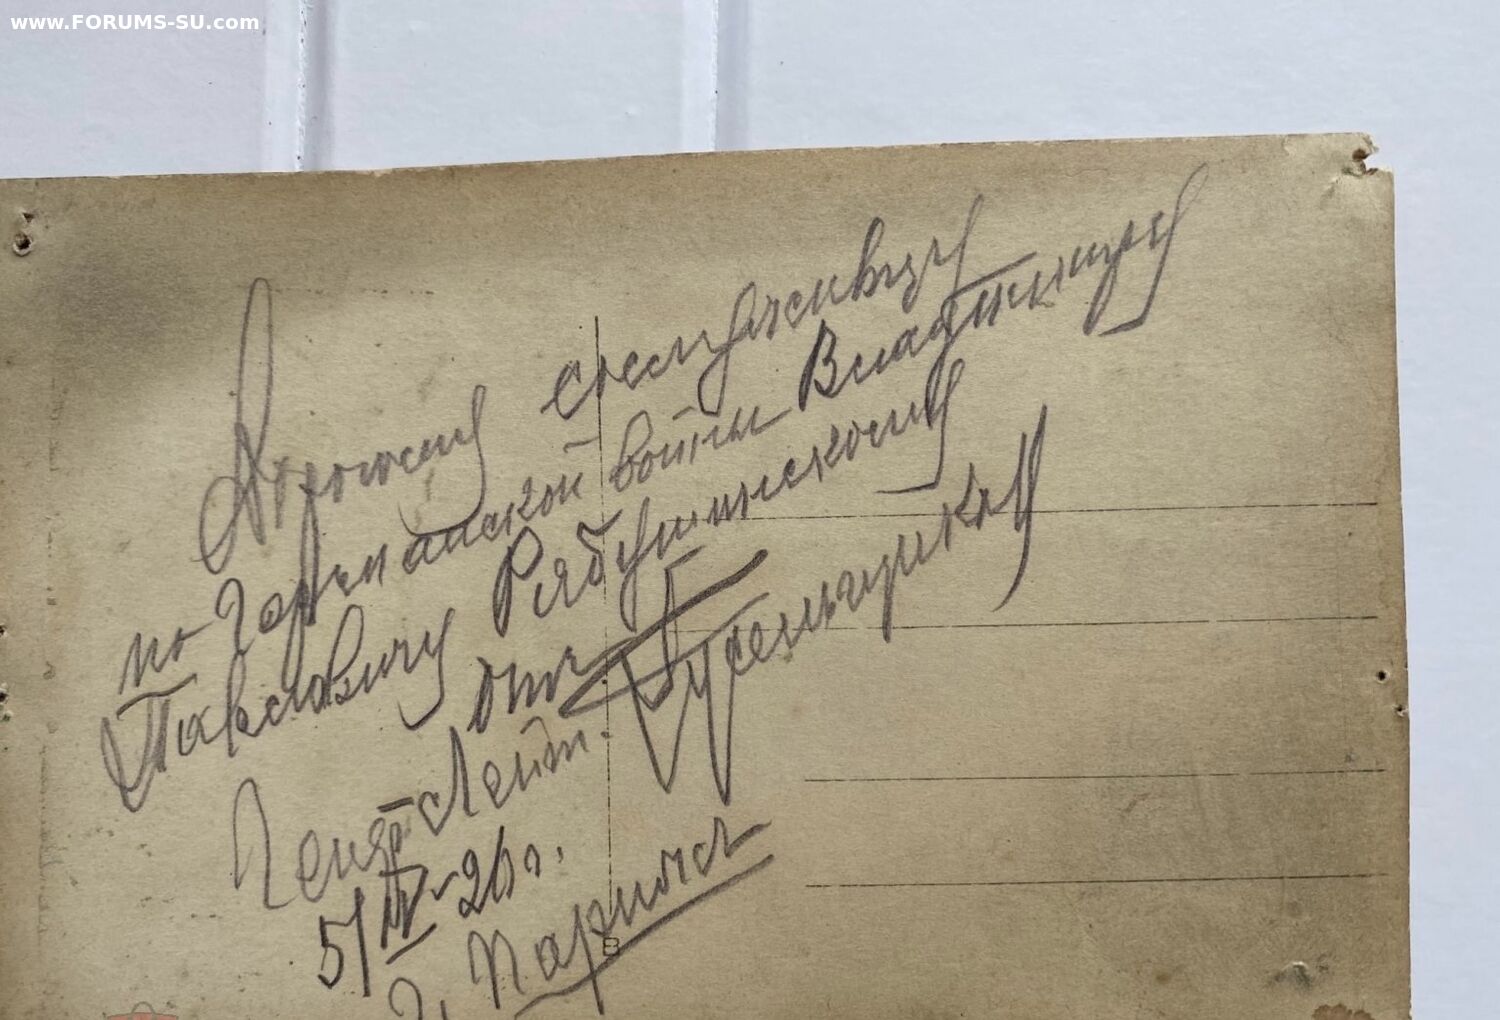 www.FORUMS-SU.com
Дорогому сослуживцу
по Германской войны Владимиру
Павловичу Рябушинскому
отъ Гусельщикова
Ген. Лейт.
5/IV-26 г.
г. Парижъ